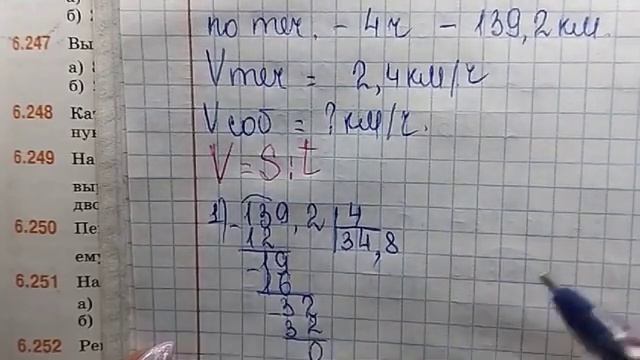 б)
6.247 Вы
а)
б)
6.248 Ка
ную
6.249 На
выр
дво
6.250 Пе
ему
6.251 На
а)
б)
6.252 Реш
по теч. - 4ч - 139,2 км.
Vтеч = 2,4км/ч
Vсоб = ? км/ч.
V = S : t
1) 139,2 | 4
12 34,8
19
16
32
32
0